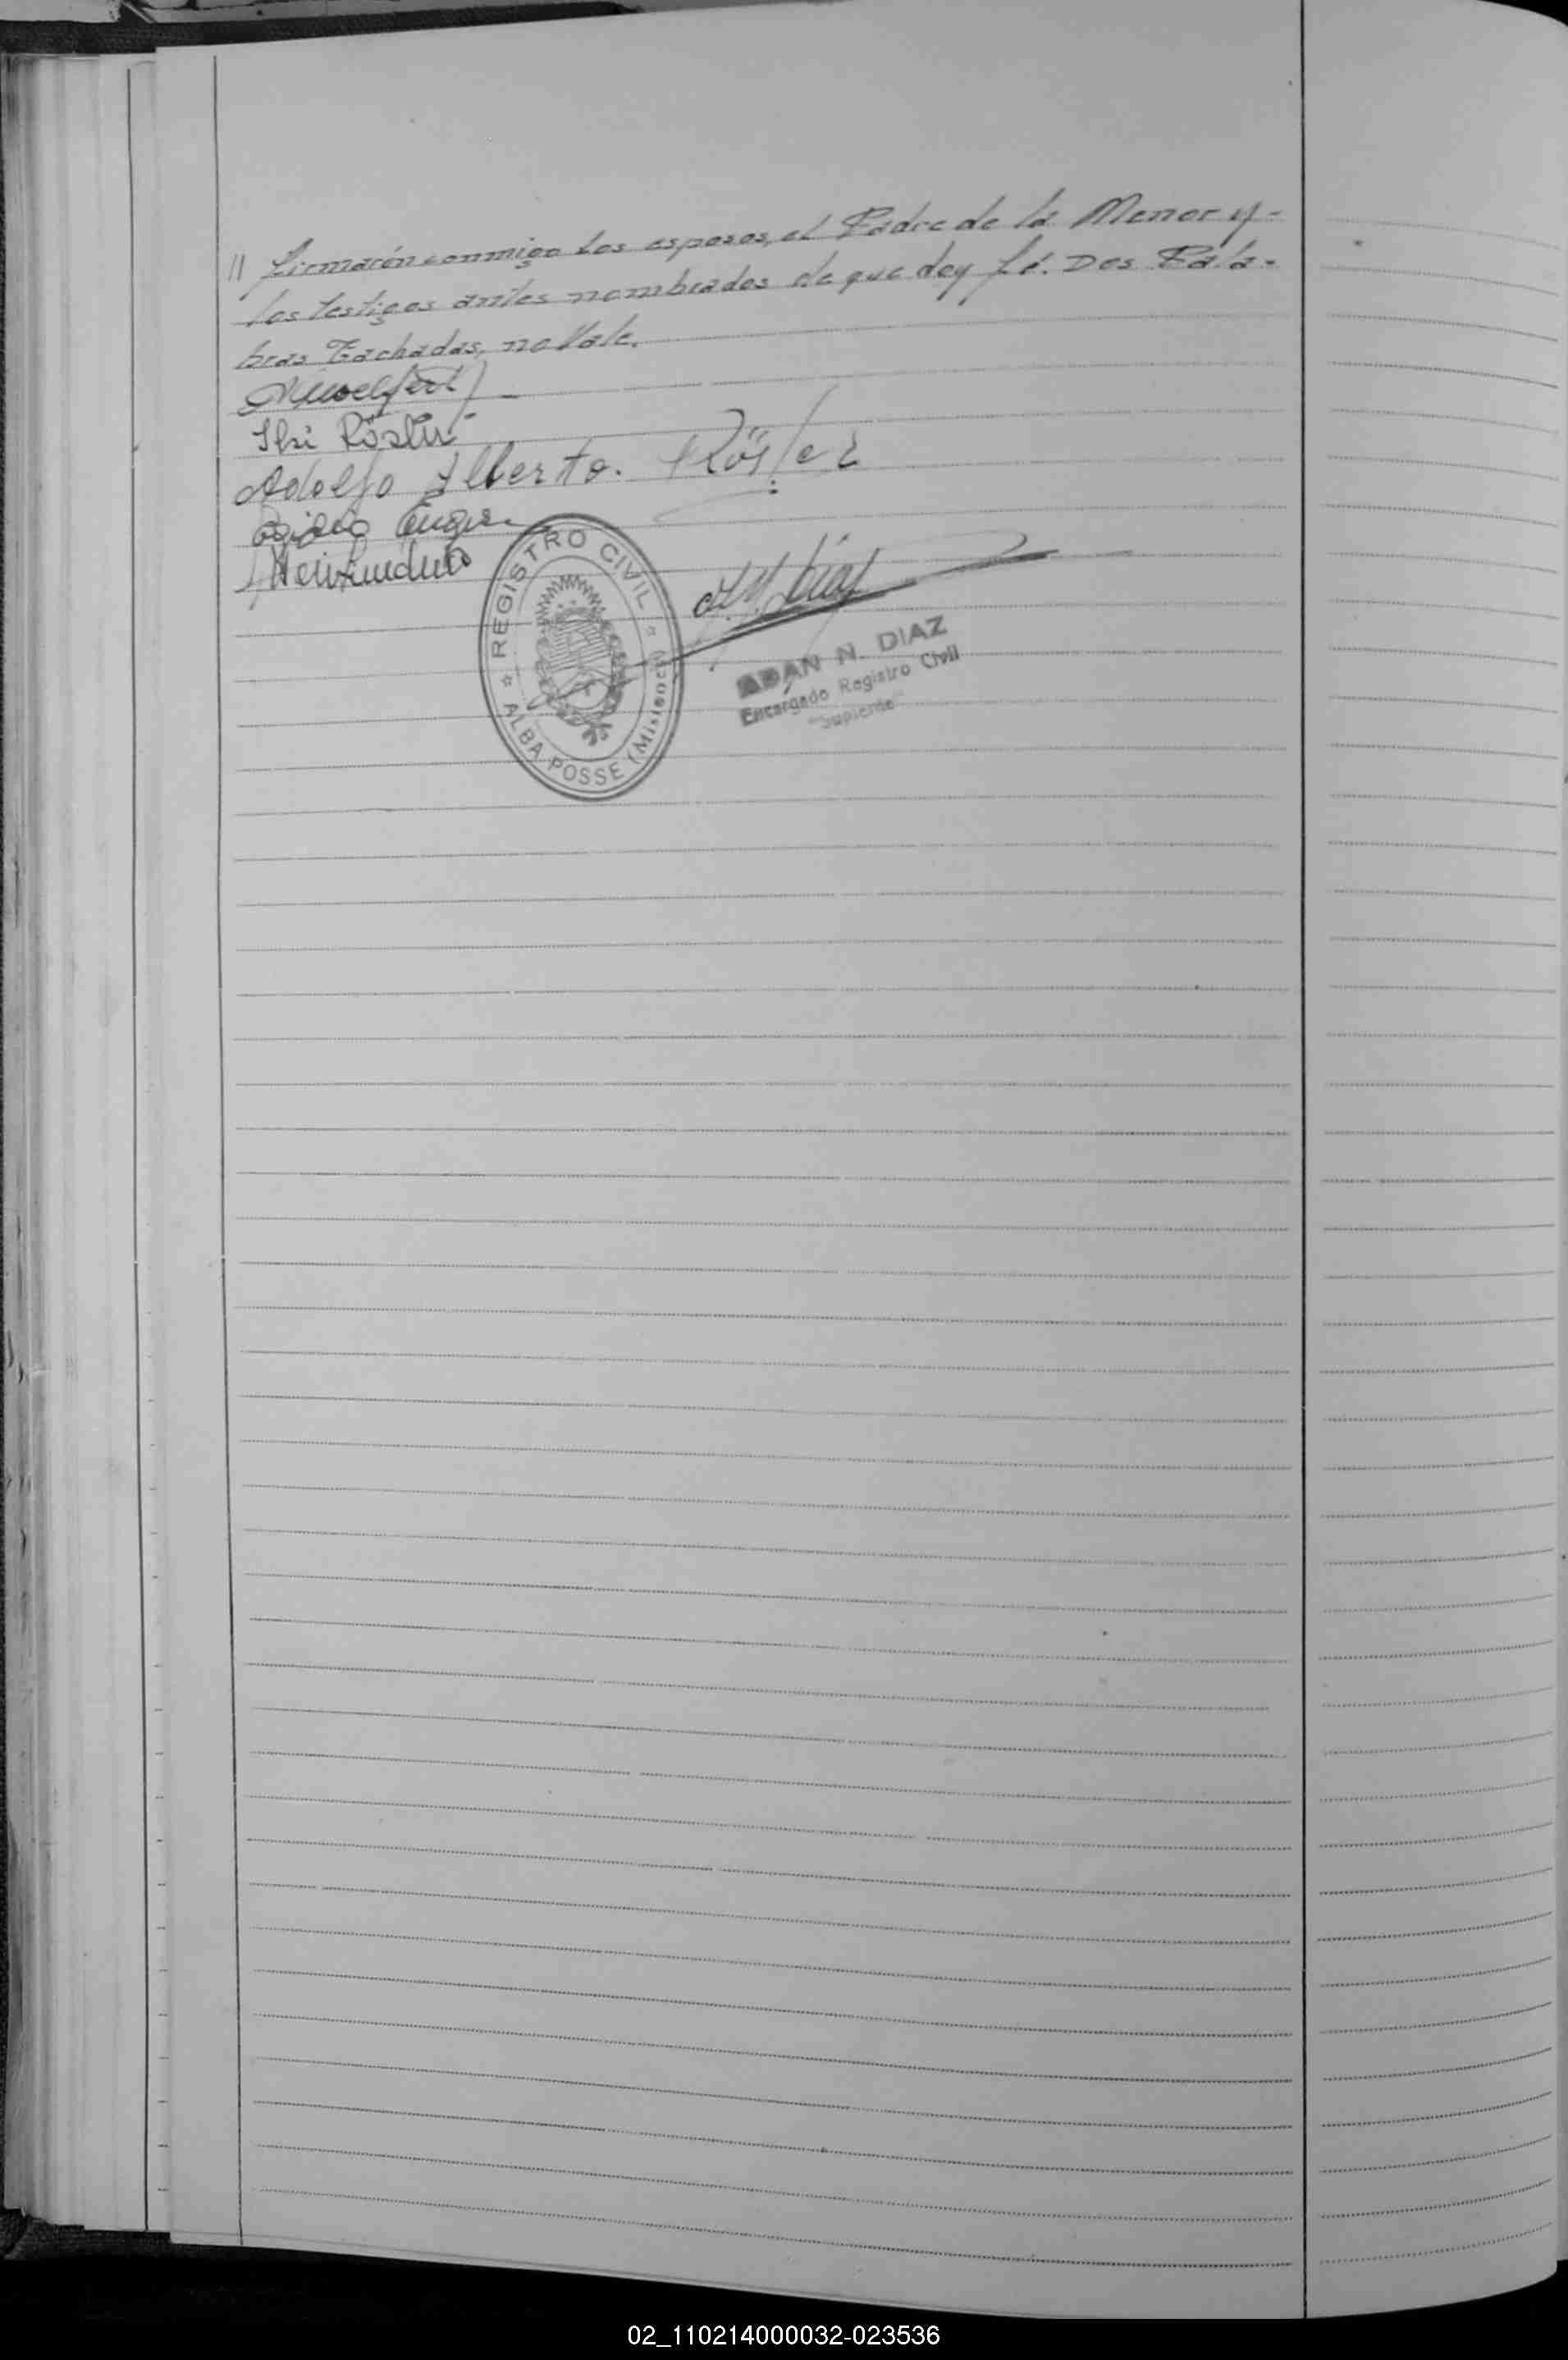 // firmarón conmigo los esposos, el Padre de la Menor y-
los testigos antes nombrados de que doy fé. Dos Pala-
bras Tachadas, no Vale.
Röster
Adolfo Alberto. Röster
REGISTRO CIVIL
ALBA POSSE (Misiones)
ADAN N. DIAZ
Encargado Registro Civil
"Suplente"
02_110214000032-023536